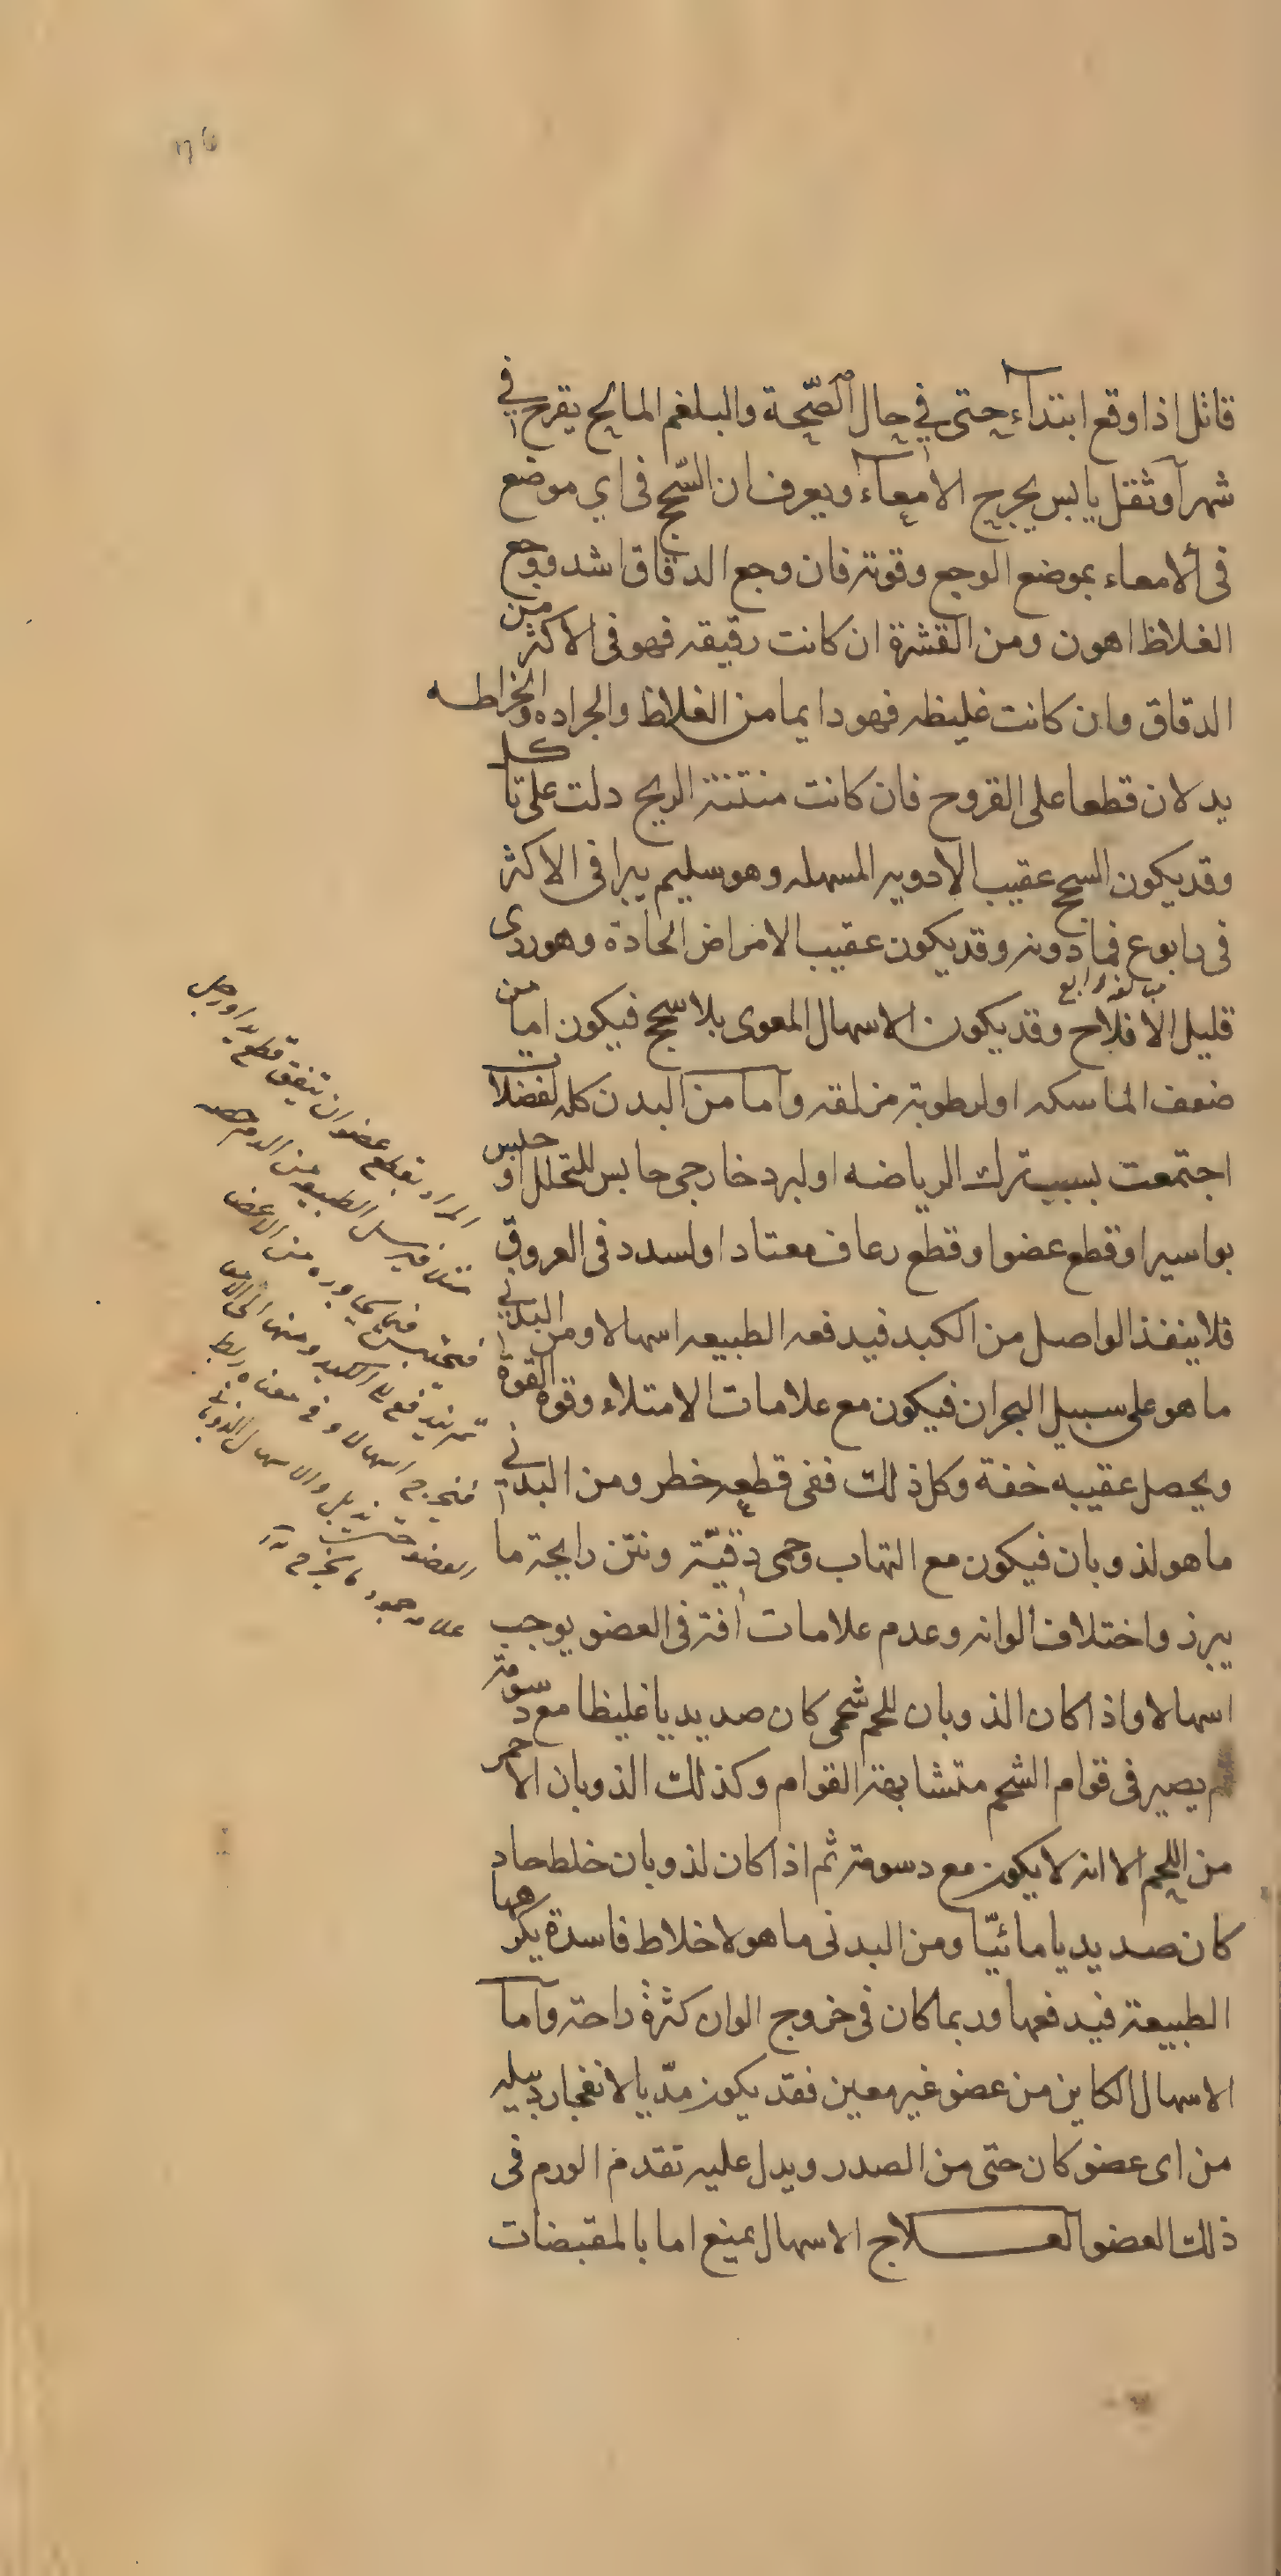 قاتل اذا وقع ابتدآء حتى في حال الصّحة والبلغم المالح يقرح في
شهر آو ثقل يابس يجرح الامعآء ويعرف ان السّحج فى اي موضع
فى ألامعاء بموضع الوجع وقوته فان وجع الدقاق اشد ووجع
الغلاظ اهون ومن القشرة ان كانت رقيقه فهو فى الاكثر من
الدقاق وان كانت غليظه فهو دايما من الغلاظ والجراده والخراطه
يدلان قطعا على القروح فان كانت منتنة الريح دلت على تاكل
وقد يكون السحج عقيب الادويه المسهله وهو سليم يبرا فى الاكثر
فى سابوع فما دونه وقد يكون عقيب الامراض الحادة وهو ردى
قليل الافلاح وقد يكون الاسهال المعوى بلا سحج فيكون اما من
ضعف الماسكه او لرطوبة مزلقه وآما من البدن كله لفضلات
اجتمعت بسبب ترك الرياضه او لبرد خارجى حابس للتحلل او حبس
بواسير او قطع عضو او قطع رعاف معتاد او لسدد فى العروق
فلا ينفذ الواصل من الكبد فيدفعه الطبيعه اسهالا ومن البدني
ما هو على سبيل البحران فيكون مع علامات الامتلاء وقوه القوة
ويحصل عقيبه خفة وكل ذلك ففى قطعه خطر ومن البدني
ما هو لذوبان فيكون مع التهاب وحمى دقيّة ونتن رايحة ما
يبرز واختلاف الوانه وعدم علامات افة فى العضو يوجب
اسهالا واذا كان الذوبان للحم شحمى كان صديديا غليظا مع دسومة
ثم يصير فى قوام الشحم متشابهة القوام وكذلك الذوبان الاحمر
من اللحم الا انه لا يكون مع دسومة ثم اذا كان لذوبان خلط حاد
كان صديديا مائيّا ومن البدنى ما هو لاخلاط فاسدة يكرهها
الطبيعة فيدفعها وربما كان فى خروج الوان كثرة راحة وآما
الاسهال الكاين من عضو غير معين فقد يكون مدّيا لانفجار دبيله
من اى عضو كان حتى من الصدر ويدل عليه تقدم الورم فى
ذلك العضو العلاج الاسهال يمنع اما بالمقبضات
المراد بقطع عضو ان يتفق قطع يد او رجل